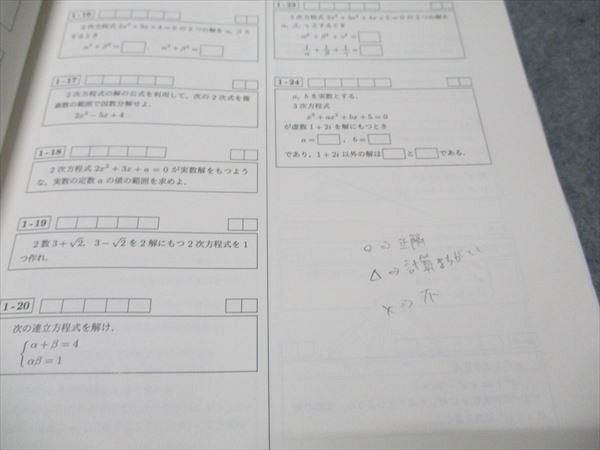 1-16
2次方程式2x²+3x+4=0の2つの解をα, βと
するとき
α²+β²=□, α³+β³=□
1-17
2次方程式の解の公式を利用して, 次の2次式を複
素数の範囲で因数分解せよ.
2x²-5x+4
1-18
2次方程式2x²+3x+a=0が実数解をもつよう
な, 実数の定数aの値の範囲を求めよ.
1-19
2数3+√2, 3-√2を2解にもつ2次方程式を1
つ作れ.
1-20
次の連立方程式を解け.
α+β=4
αβ=1
1-23
α, β, γとするとき
α²+β²+γ²=□
1/α+1/β+1/γ=□
1-24
a, bを実数とする.
3次方程式
x³+ax²+bx+5=0
が虚数1+2iを解にもつとき
a=□, b=□
であり, 1+2i以外の解は□と□である.
○⇒正解
△⇒計算まちがい
×⇒